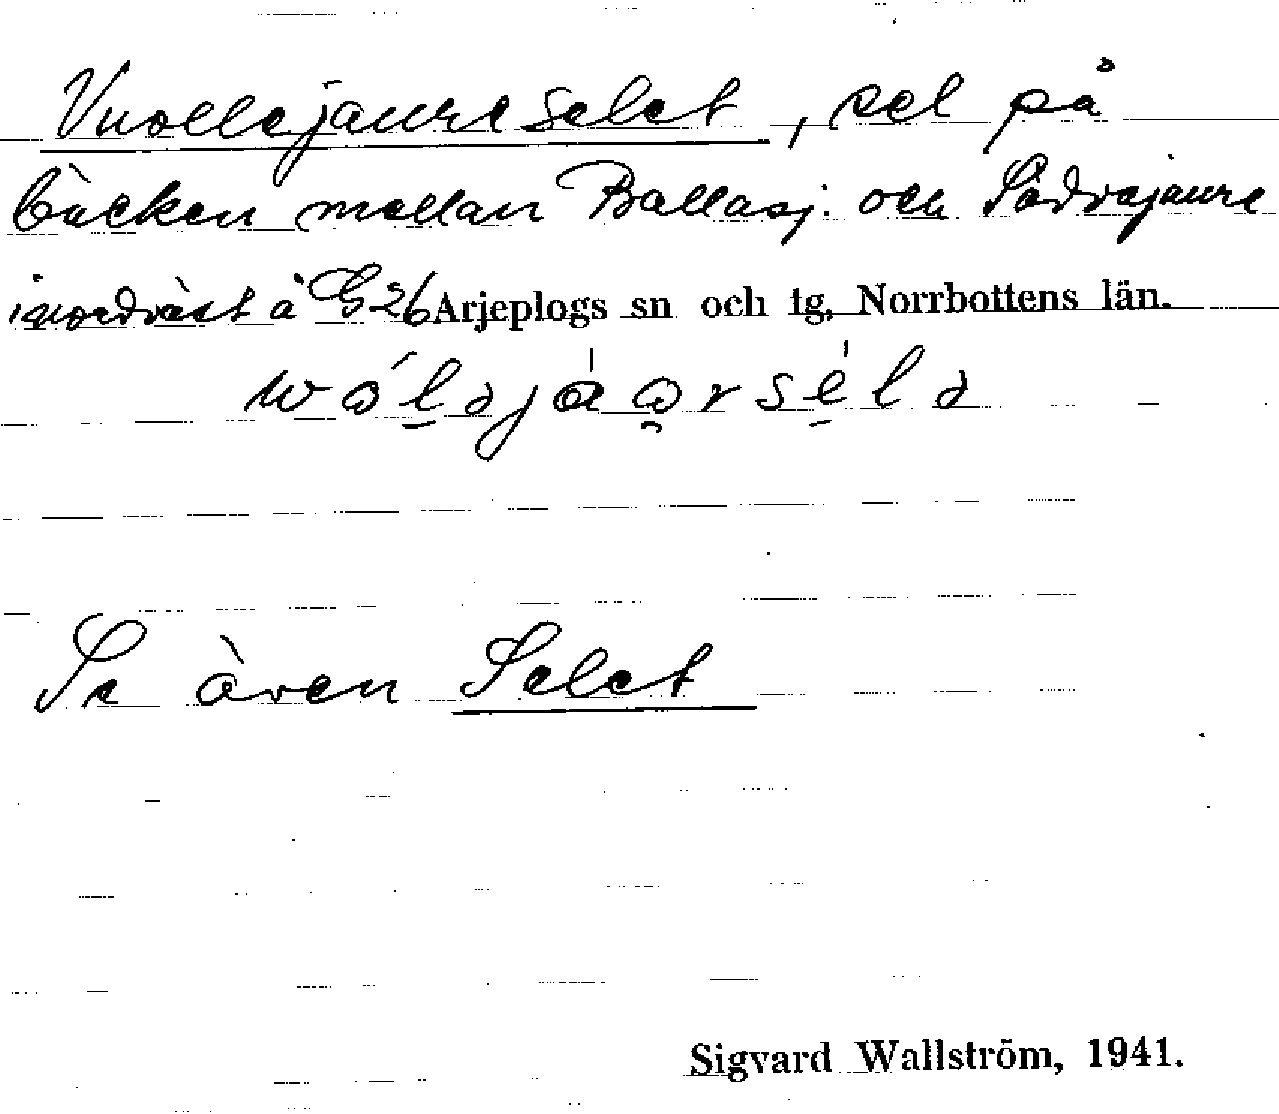 Vuollejaureselet, sel på
bäcken mellan Ballasj. och Sädvajaure
i nordväst å G26 Arjeplogs sn och tg, Norrbottens län.
Se även Selet
Sigvard Wallström, 1941.